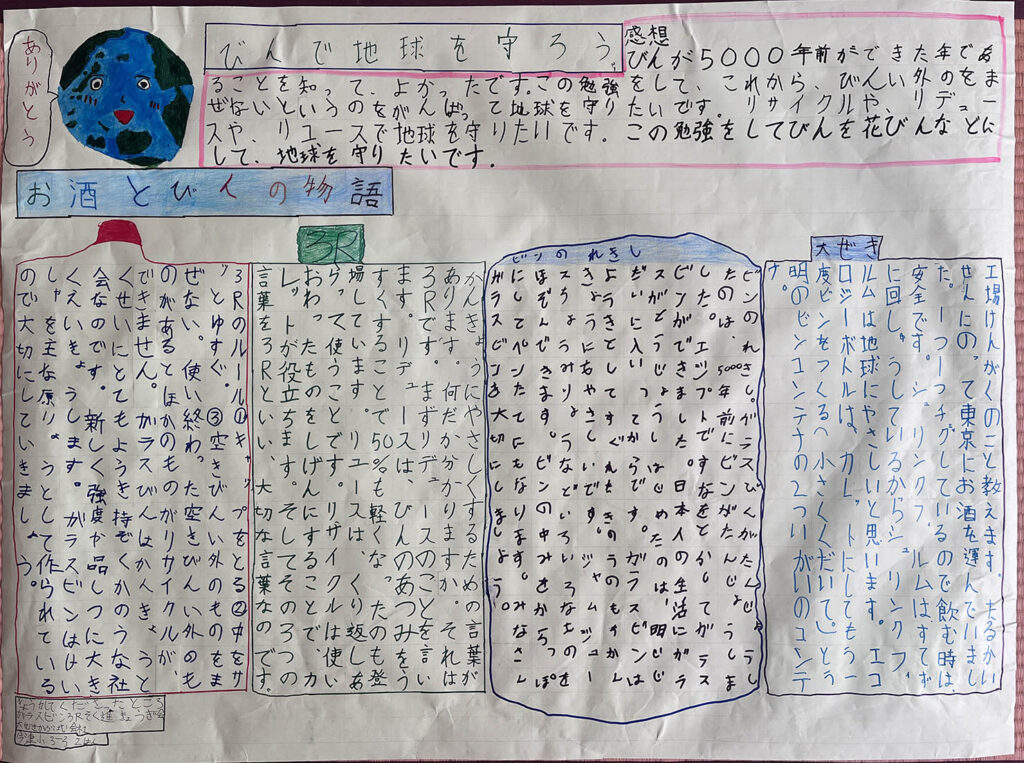 ありがとう
びんで地球を守ろう。
感想
びんが5000年前ができた年であ
ることを知って、よかったです。この勉強をして、これから、びんい外のをま
ぜないというのをがんばって地球を守りたいです。リサイクルや、リデュー
スや、リユースで地球を守りたいです。この勉強をしてびんを花びんなどに
して、地球を守りたいです。
お酒とびんの物語
大ぜき
工場けんがくのこと教えます。大るかい
せんにのって東京にお酒を運んでいまし
た。一つ一つチグしているので飲む時は、
安全です。シュリンクフィルムはすてず
に回しゅうしているからシュリンクフィ
ルムは地球にやさしいと思います。エコ
ロジーボトルは、カレットにしてもう一
度ビンをつくる(小さくくだいて)とう
明のビンコンテナの2ついがいのコンテ
ナ。
ビンのれきし
ビンのれきし。ガラスびんがたんじょうし
たのは、5000年前にビンがたんじょうしま
した。エジプトですなをとかしてガラス
ビンができました。日本人の生活にガラ
スがとうじょうしはじめたのは、明じ
だいに入ってからです。ガラスビンは
きょうにもやさしいです。ジャムジュー
スちょうみりょうなどいろいろなものを
ほぞんできます。ビンの中みをからっぽ
にしてペンたてにもなります。みなさん
ガラスビンを大切にしましょう。
3R
かんきょうにやさしくするための言葉が
あります。何だかわかりますか。それは
3Rです。まずリデュースのことを言い
ます。リデュースは、びんのあつみをう
すくすることで50%も軽くなったのも登
場しています。リユースは、くり返しあ
らって使うことです。リサイクルは使い
おわったものをしげんにすることで、カ
レットが役立ちます。そしてその3つの
言葉を3Rといい、大切な言葉なのです。
3Rのルール①キャップをとる②中をサ
ッとゆすぐ。③空きびんい外のものをま
ぜない。使い終わった空きびんい外のも
のがあるとほかのものがリサイクルが、
できません。ガラスびんはかんきょうと
くせいにとてもようき持ぞくかのうな社
会なのです。新しく強度か品しつに大き
くえいきょうします。ガラスビンはけい
しゃを主な原りょうとして作られている
ので大切にしていきましょう。